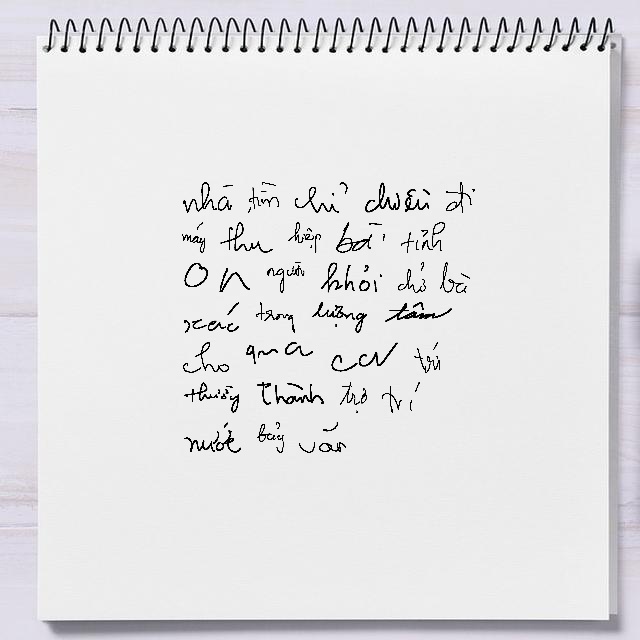 nhà tìm chỉ chuẩn đi
máy thu hiệp bài tỉnh
ON người khỏi chỉ bà
xác trong lượng tâm
cho qua CN trú
thường Thành trợ trí
nước bảy vấn